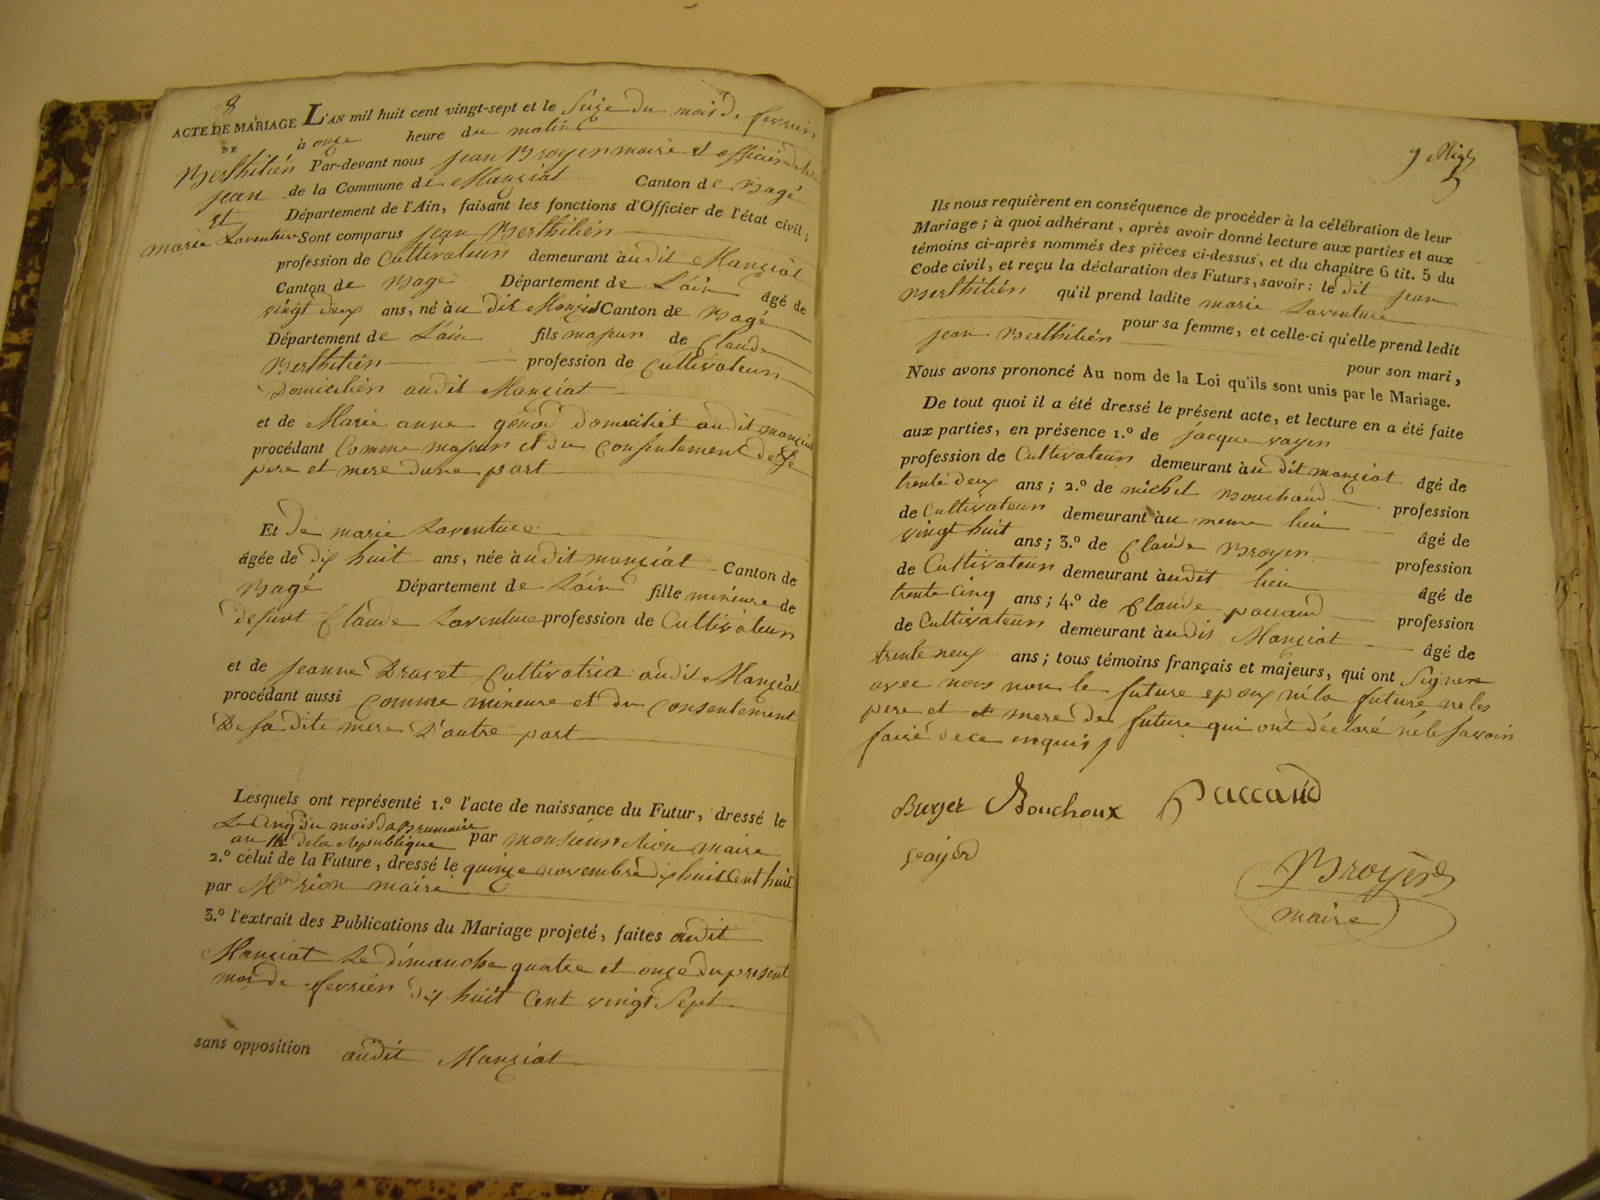 8
ACTE DE MARIAGE L'AN mil huit cent vingt-sept et le Seize du mois de fevrier
DE à onze heure du matin
Berthilién Par-devant nous jean Broyer maire et officier de
jean de la Commune de Manziat Canton de Bagé
et Département de l'Ain, faisant les fonctions d'Officier de l'état civil;
marie Laventure Sont comparus jean Berthilién
profession de Cultivateur demeurant audit Manziat
Canton de Bagé Département de L'ain âgé de
vingt deux ans, né au dit Manziat Canton de Bagé
Département de L'ain fils majeur de Claude
Berthilién profession de Cultivateur
Domicilier audit Manziat
et de Marie anne domiciliét audit manziat
procédant Comme majeur et du Consentement de Se
pere et mere dune part
Et De marie Laventure
âgée de dix huit ans, née audit manziat Canton de
Bagé Département de Lain fille mineure de
defunt Claude Laventure profession de Cultivateur
et de jeanne Dravet Cultivatrice audit Manziat
procédant aussi Comme mineure et du Consentement
De sa dite mere D'autre part
Lesquels ont représenté 1.º l'acte de naissance du Futur, dressé le
Le Cinq du mois de Brumaire
an de la republique par monsieur Rion maire
2.º célui de la Future, dressé le quinze novembre dix huit Cent huit
par Mr rion maire
3.º l'extrait des Publications du Mariage projeté, faites audit
Manziat Le dimanche quatre et onze du present
mois de fevrier dix huit Cent vingt Sept
sans opposition audit Manziat
9
Ils nous requièrent en conséquence de procéder à la célébration de leur
Mariage; à quoi adhérant, après avoir donné lecture aux parties et aux
témoins ci-après nommés des pièces ci-dessus, et du chapitre 6 tit. 5 du
Code civil, et reçu la déclaration des Futurs, savoir: le dit jean
Berthilién qu'il prend ladite marie Laventure
pour sa femme, et celle-ci qu'elle prend ledit
jean Berthilién pour son mari,
Nous avons prononcé Au nom de la Loi qu'ils sont unis par le Mariage.
De tout quoi il a été dressé le présent acte, et lecture en a été faite
aux parties, en présence 1.º de jacque vayer
profession de Cultivateur demeurant au dit manziat âgé de
trente deux ans; 2.º de michel Bouchaud profession
de Cultivateur demeurant au meme lieu âgé de
vingt huit ans; 3.º de Claude Broyer profession
de Cultivateur demeurant audit lieu âgé de
trente Cinq ans; 4.º de Claude paccaud profession
de Cultivateur demeurant audit Manziat âgé de
trente neuf ans; tous témoins français et majeurs, qui ont Signer
avec nous non le future epoux ni la future ne les
pere et mere de future qui ont déclaré ne le savoir
faire de ce enquis
Buyer Bouchoux Paccaud
vayer
Broyer
maire